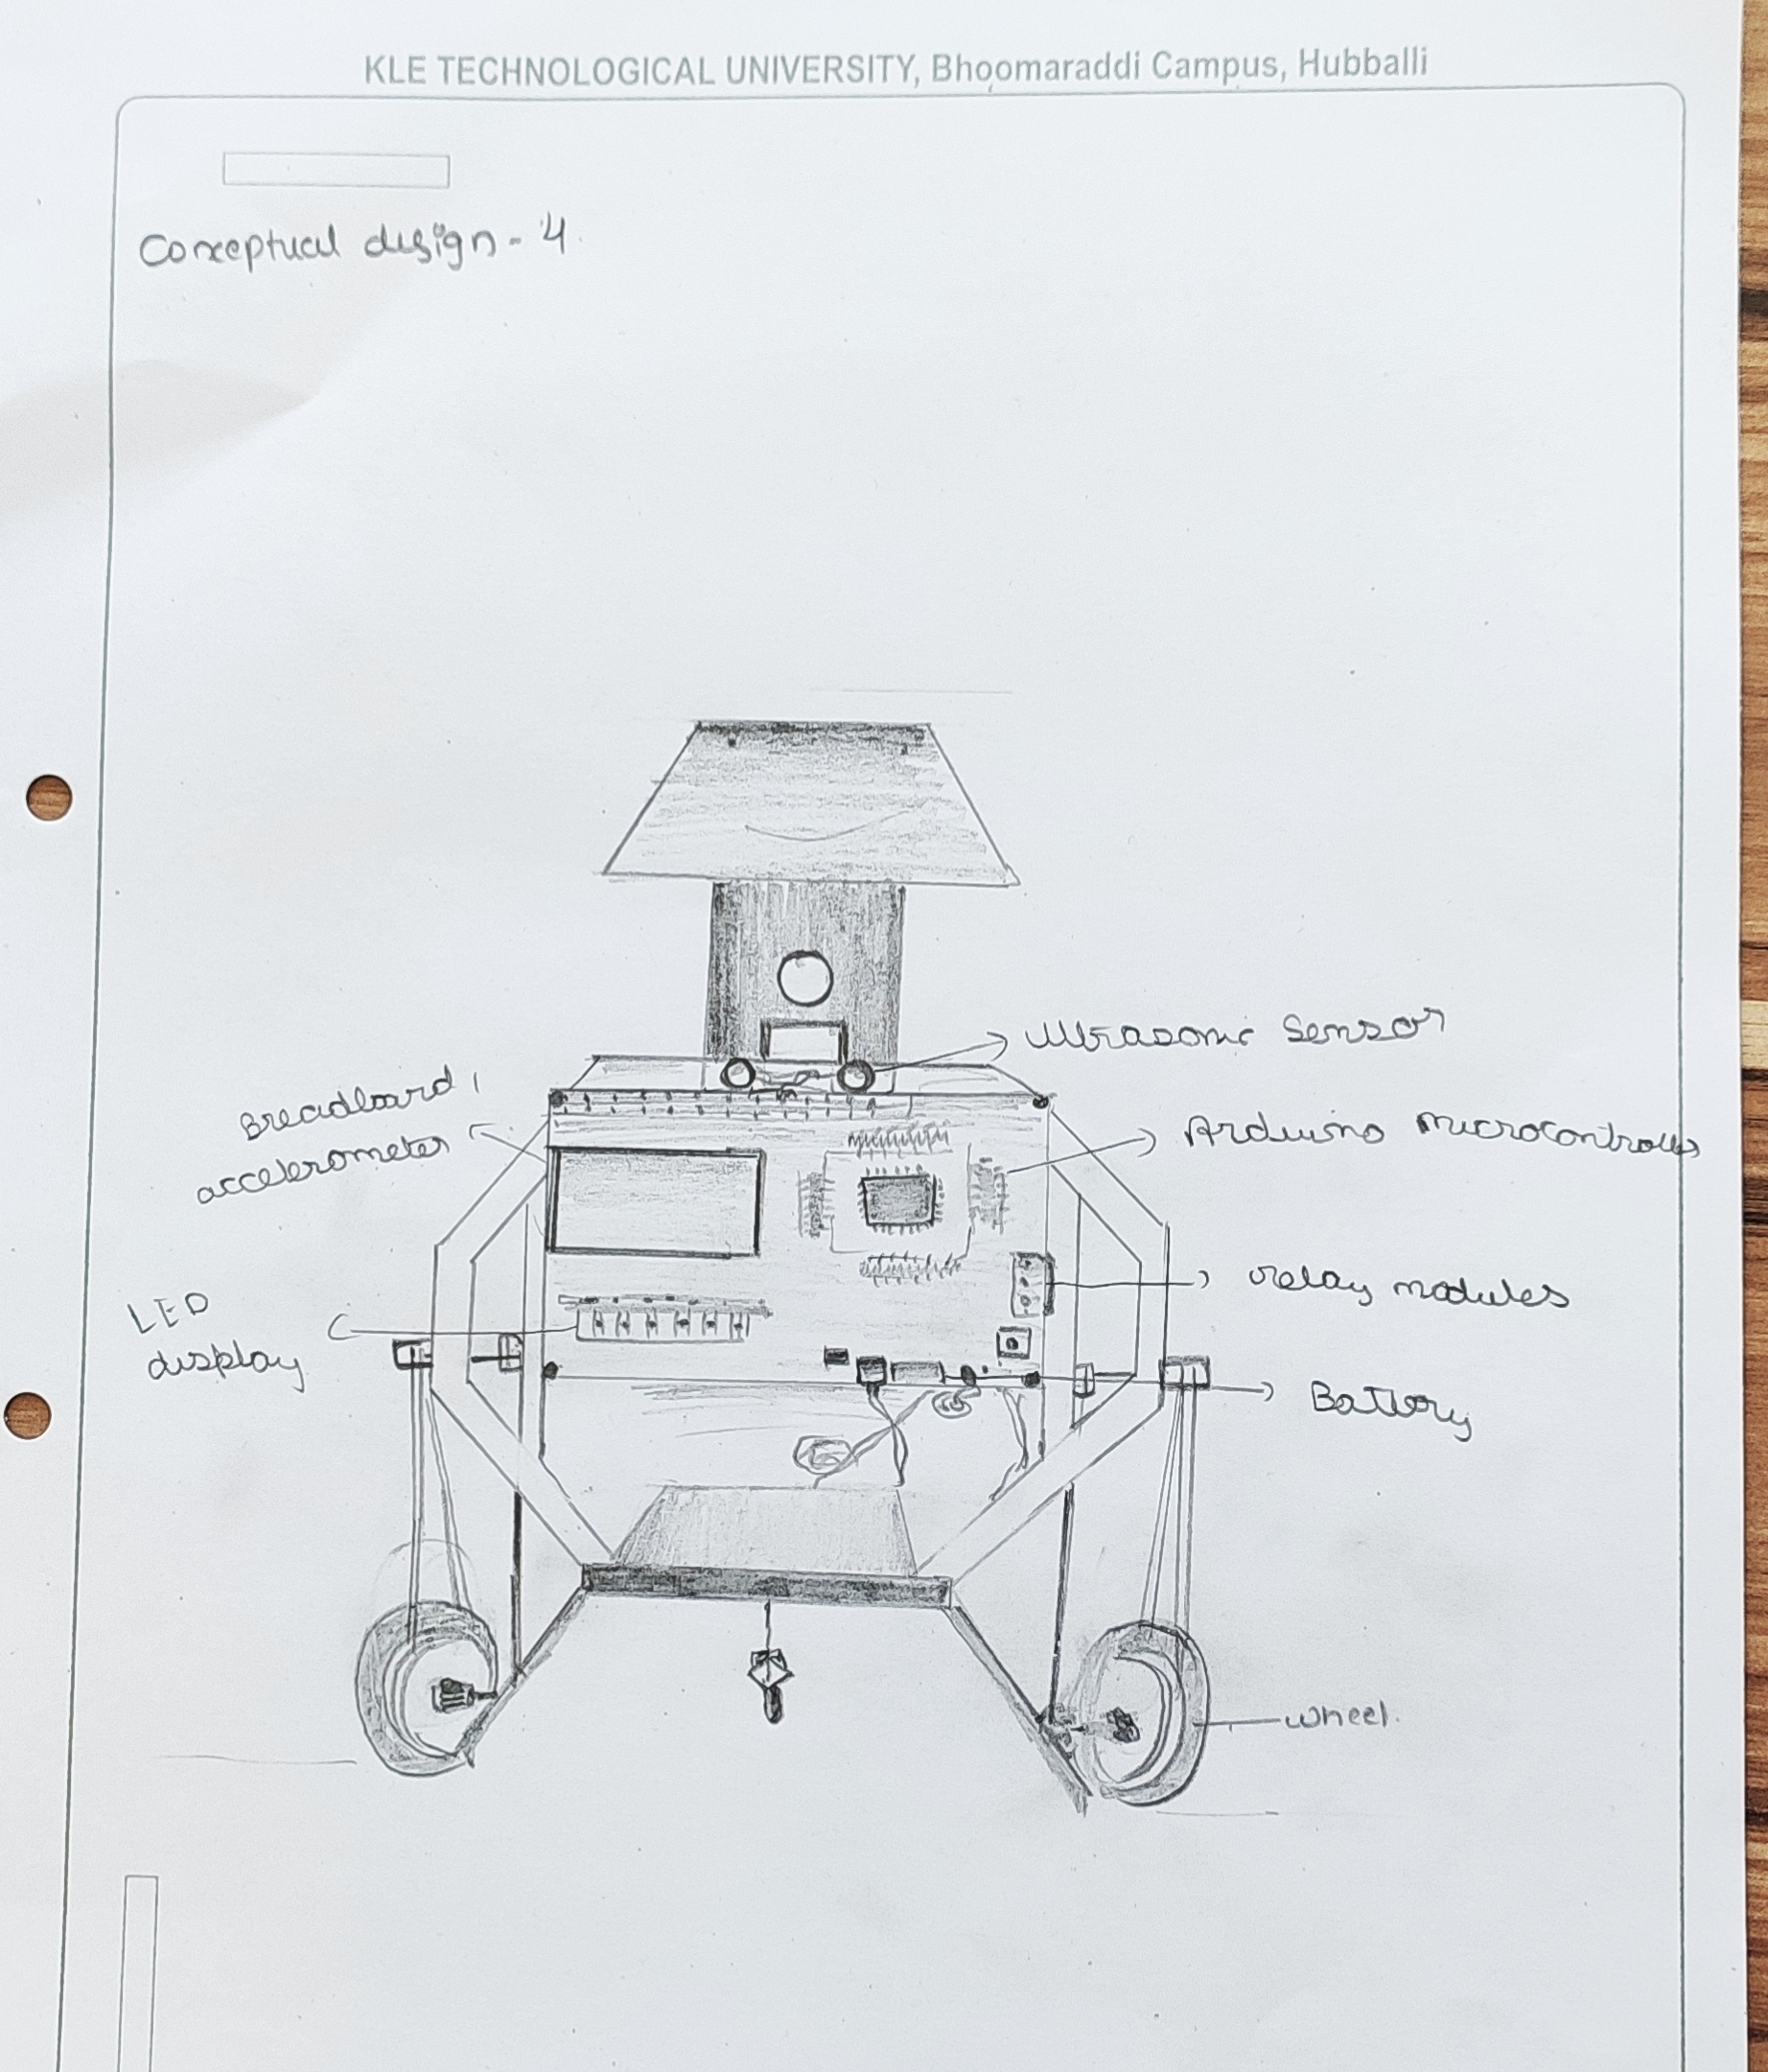 KLE TECHNOLOGICAL UNIVERSITY, Bhoomaraddi Campus, Hubballi
Conceptual design - 4.
Ultrasonic Sensor
Breadboard,
accelerometer
Arduino Microcontroller
relay modules
LED
display
Battery
wheel.